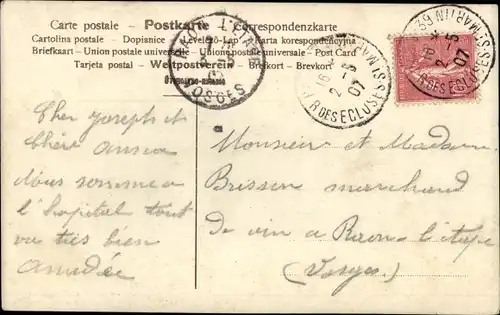 Carte postale - Postkarte - Correspondenzkarte
Cartolina postale - Dopisnice - Levelező-Lap - Karta korespondencyjna
Briefkaart - Union postale universelle - Unione postale universale - Post Card
Tarjeta postal - Weltpostverein - Brefkort - Brevkort
VOSGES
16
2 - 5
07
R DES ECLUSES ST MARTIN
16
2 - 5
07
R DES ECLUSES ST MARTIN 39
Cher Joseph et
Chère
Nous somme a
l'hopital tout
va tiès bien
Amedée
Monsieur et Madame
Brisson marchand
de vin a Raon-l'etape
(Vosges)